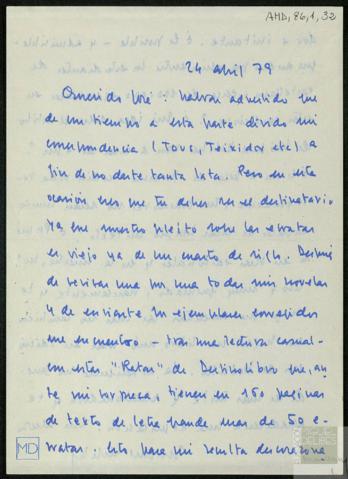 AMD, 86, 1, 32
24 abril 79
Querido José: habrás advertido que
de un tiempo a esta parte divido mi
correspondencia (Tous, Teixidor etc) a
fin de no darte tanta lata. Pero en esta
ocasión eres tú debes ser el destinatario
ya que nuestro pleito sobre las erratas
es viejo ya de un cuarto de siglo. Después
de revisar una por una todas mis novelas
y de enviarte los ejemplares corregidos
me encuentro - tras una lectura casual -
con estas "Ratas" de Destinolibro que, an-
te mi sorpresa, tienen en 150 páginas
de texto de letra grande más de 50 e-
rratas. Esto para mí resulta descorazona
MD
DELIBES
1